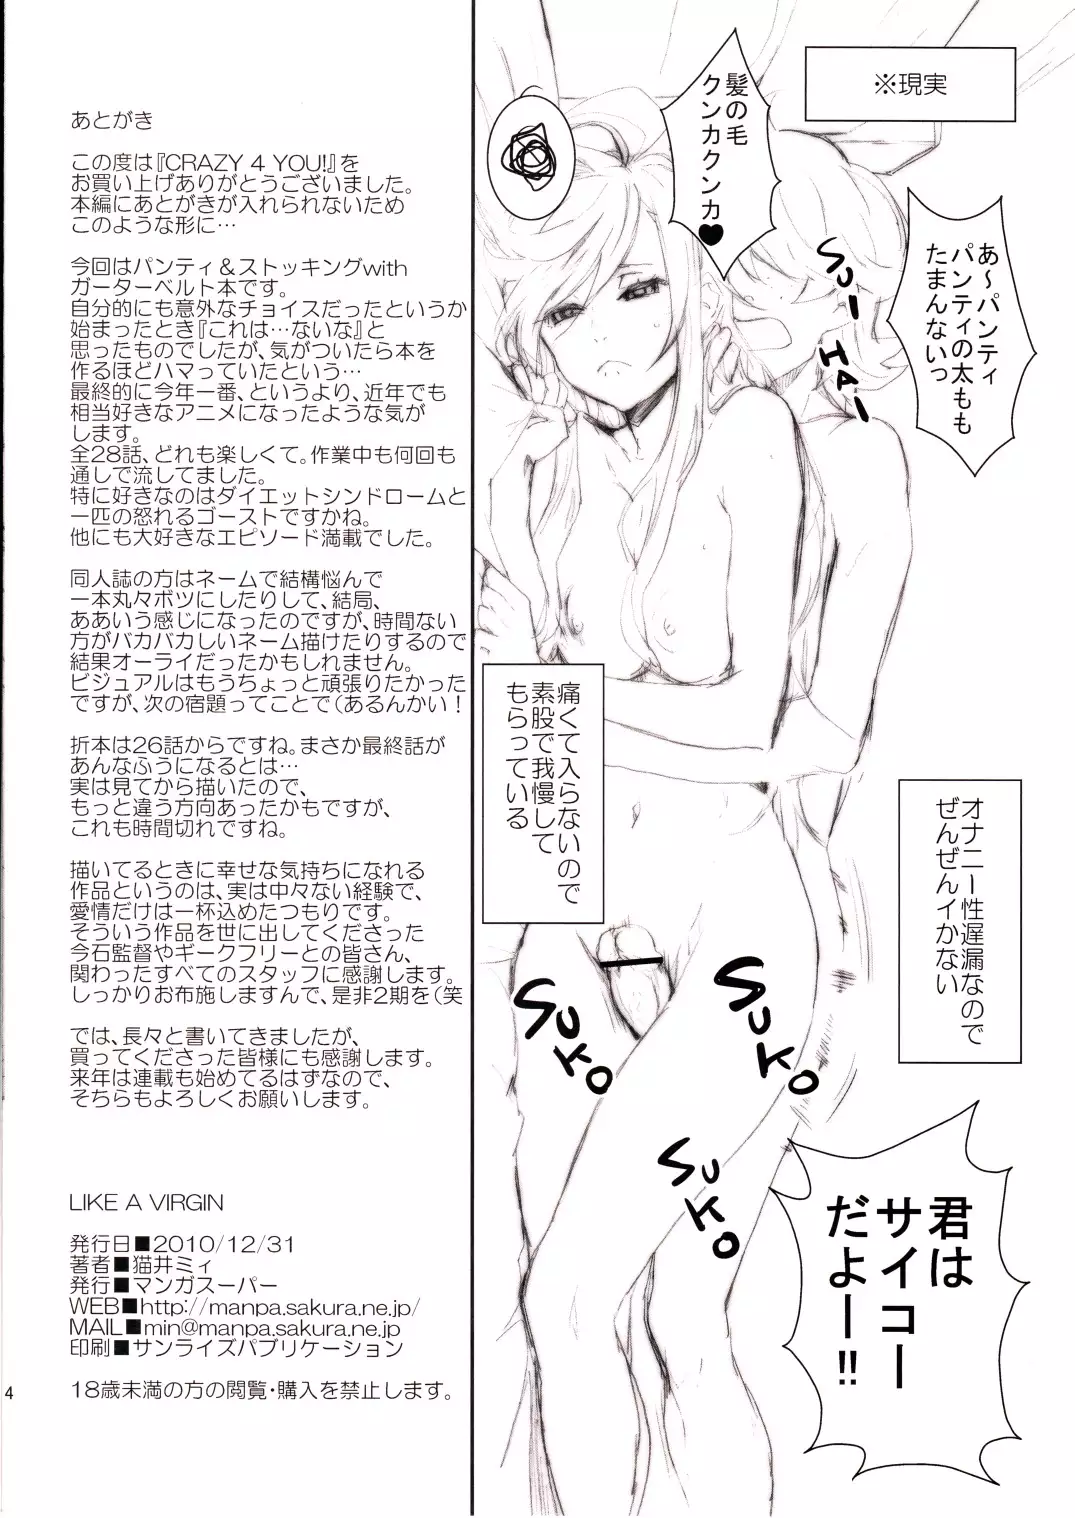 あとがき
この度は『CRAZY 4 YOU!』を
お買い上げありがとうございました。
本編にあとがきが入れられないため
このような形に…
今回はパンティ＆ストッキングwith
ガーターベルト本です。
自分的にも意外なチョイスだったというか
始まったとき『これは…ないな』と
思ったものでしたが、気がついたら本を
作るほどハマっていたという…
最終的に今年一番、というより、近年でも
相当好きなアニメになったような気が
します。
全28話、どれも楽しくて。作業中も何回も
通しで流してました。
特に好きなのはダイエットシンドロームと
一匹の怒れるゴーストですかね。
他にも大好きなエピソード満載でした。
同人誌の方はネームで結構悩んで
一本丸々ボツにしたりして、結局、
ああいう感じになったのですが、時間ない
方がバカバカしいネーム描けたりするので
結果オーライだったかもしれません。
ビジュアルはもうちょっと頑張りたかった
ですが、次の宿題ってことで（あるんかい！
折本は26話からですね。まさか最終話が
あんなふうになるとは…
実は見てから描いたので、
もっと違う方向あったかもですが、
これも時間切れですね。
描いてるときに幸せな気持ちになれる
作品というのは、実は中々ない経験で、
愛情だけは一杯込めたつもりです。
そういう作品を世に出してくださった
今石監督やギークフリーとの皆さん、
関わったすべてのスタッフに感謝します。
しっかりお布施しますんで、是非2期を（笑
では、長々と書いてきましたが、
買ってくださった皆様にも感謝します。
来年は連載も始めてるはずなので、
そちらもよろしくお願いします。
LIKE A VIRGIN
発行日■2010/12/31
著者■猫井ミィ
発行■マンガスーパー
WEB■http://manpa.sakura.ne.jp/
MAIL■min@manpa.sakura.ne.jp
印刷■サンライズパブリケーション
18歳未満の方の閲覧・購入を禁止します。
4
※現実
髪の毛
クンカクンカ♥
あ〜パンティ
パンティの太もも
たまんないっ
SUI
HAI
痛くて入らないので
素股で我慢して
もらっている
オナニー性遅漏なので
ぜんぜんイかない
SUKO
SUKO
SUKO
君は
サイコー
だよー!!